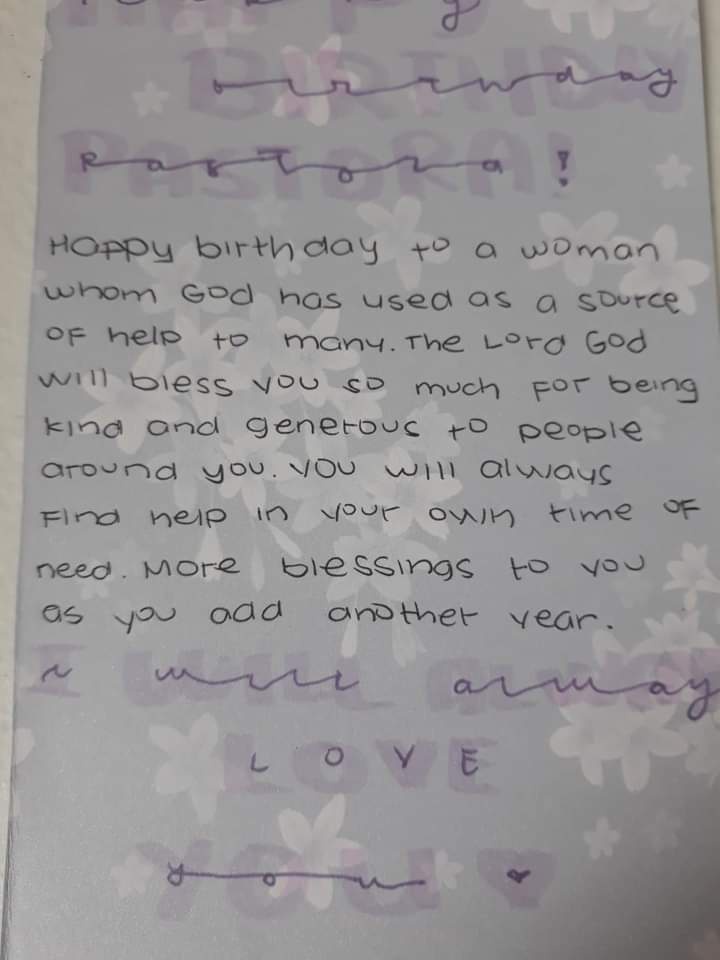 birthday
Pastora!
Happy birthday to a woman
whom God has used as a source
of help to many. The Lord God
will bless you so much for being
kind and generous to people
around you. You will always
find help in your own time of
need. More blessings to you
as you add another year.
I will alway
LOVE
you